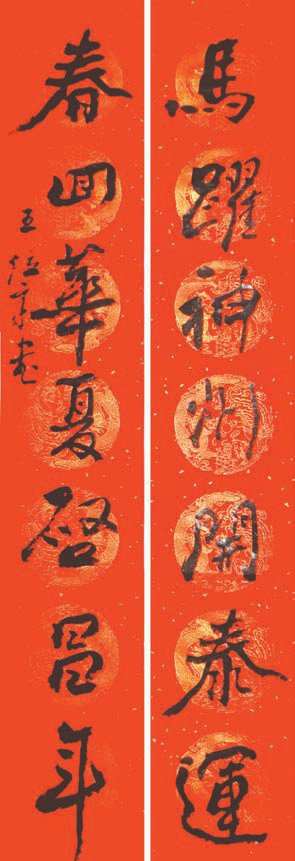 馬躍神州開泰運
春回華夏啓昌年
王位書